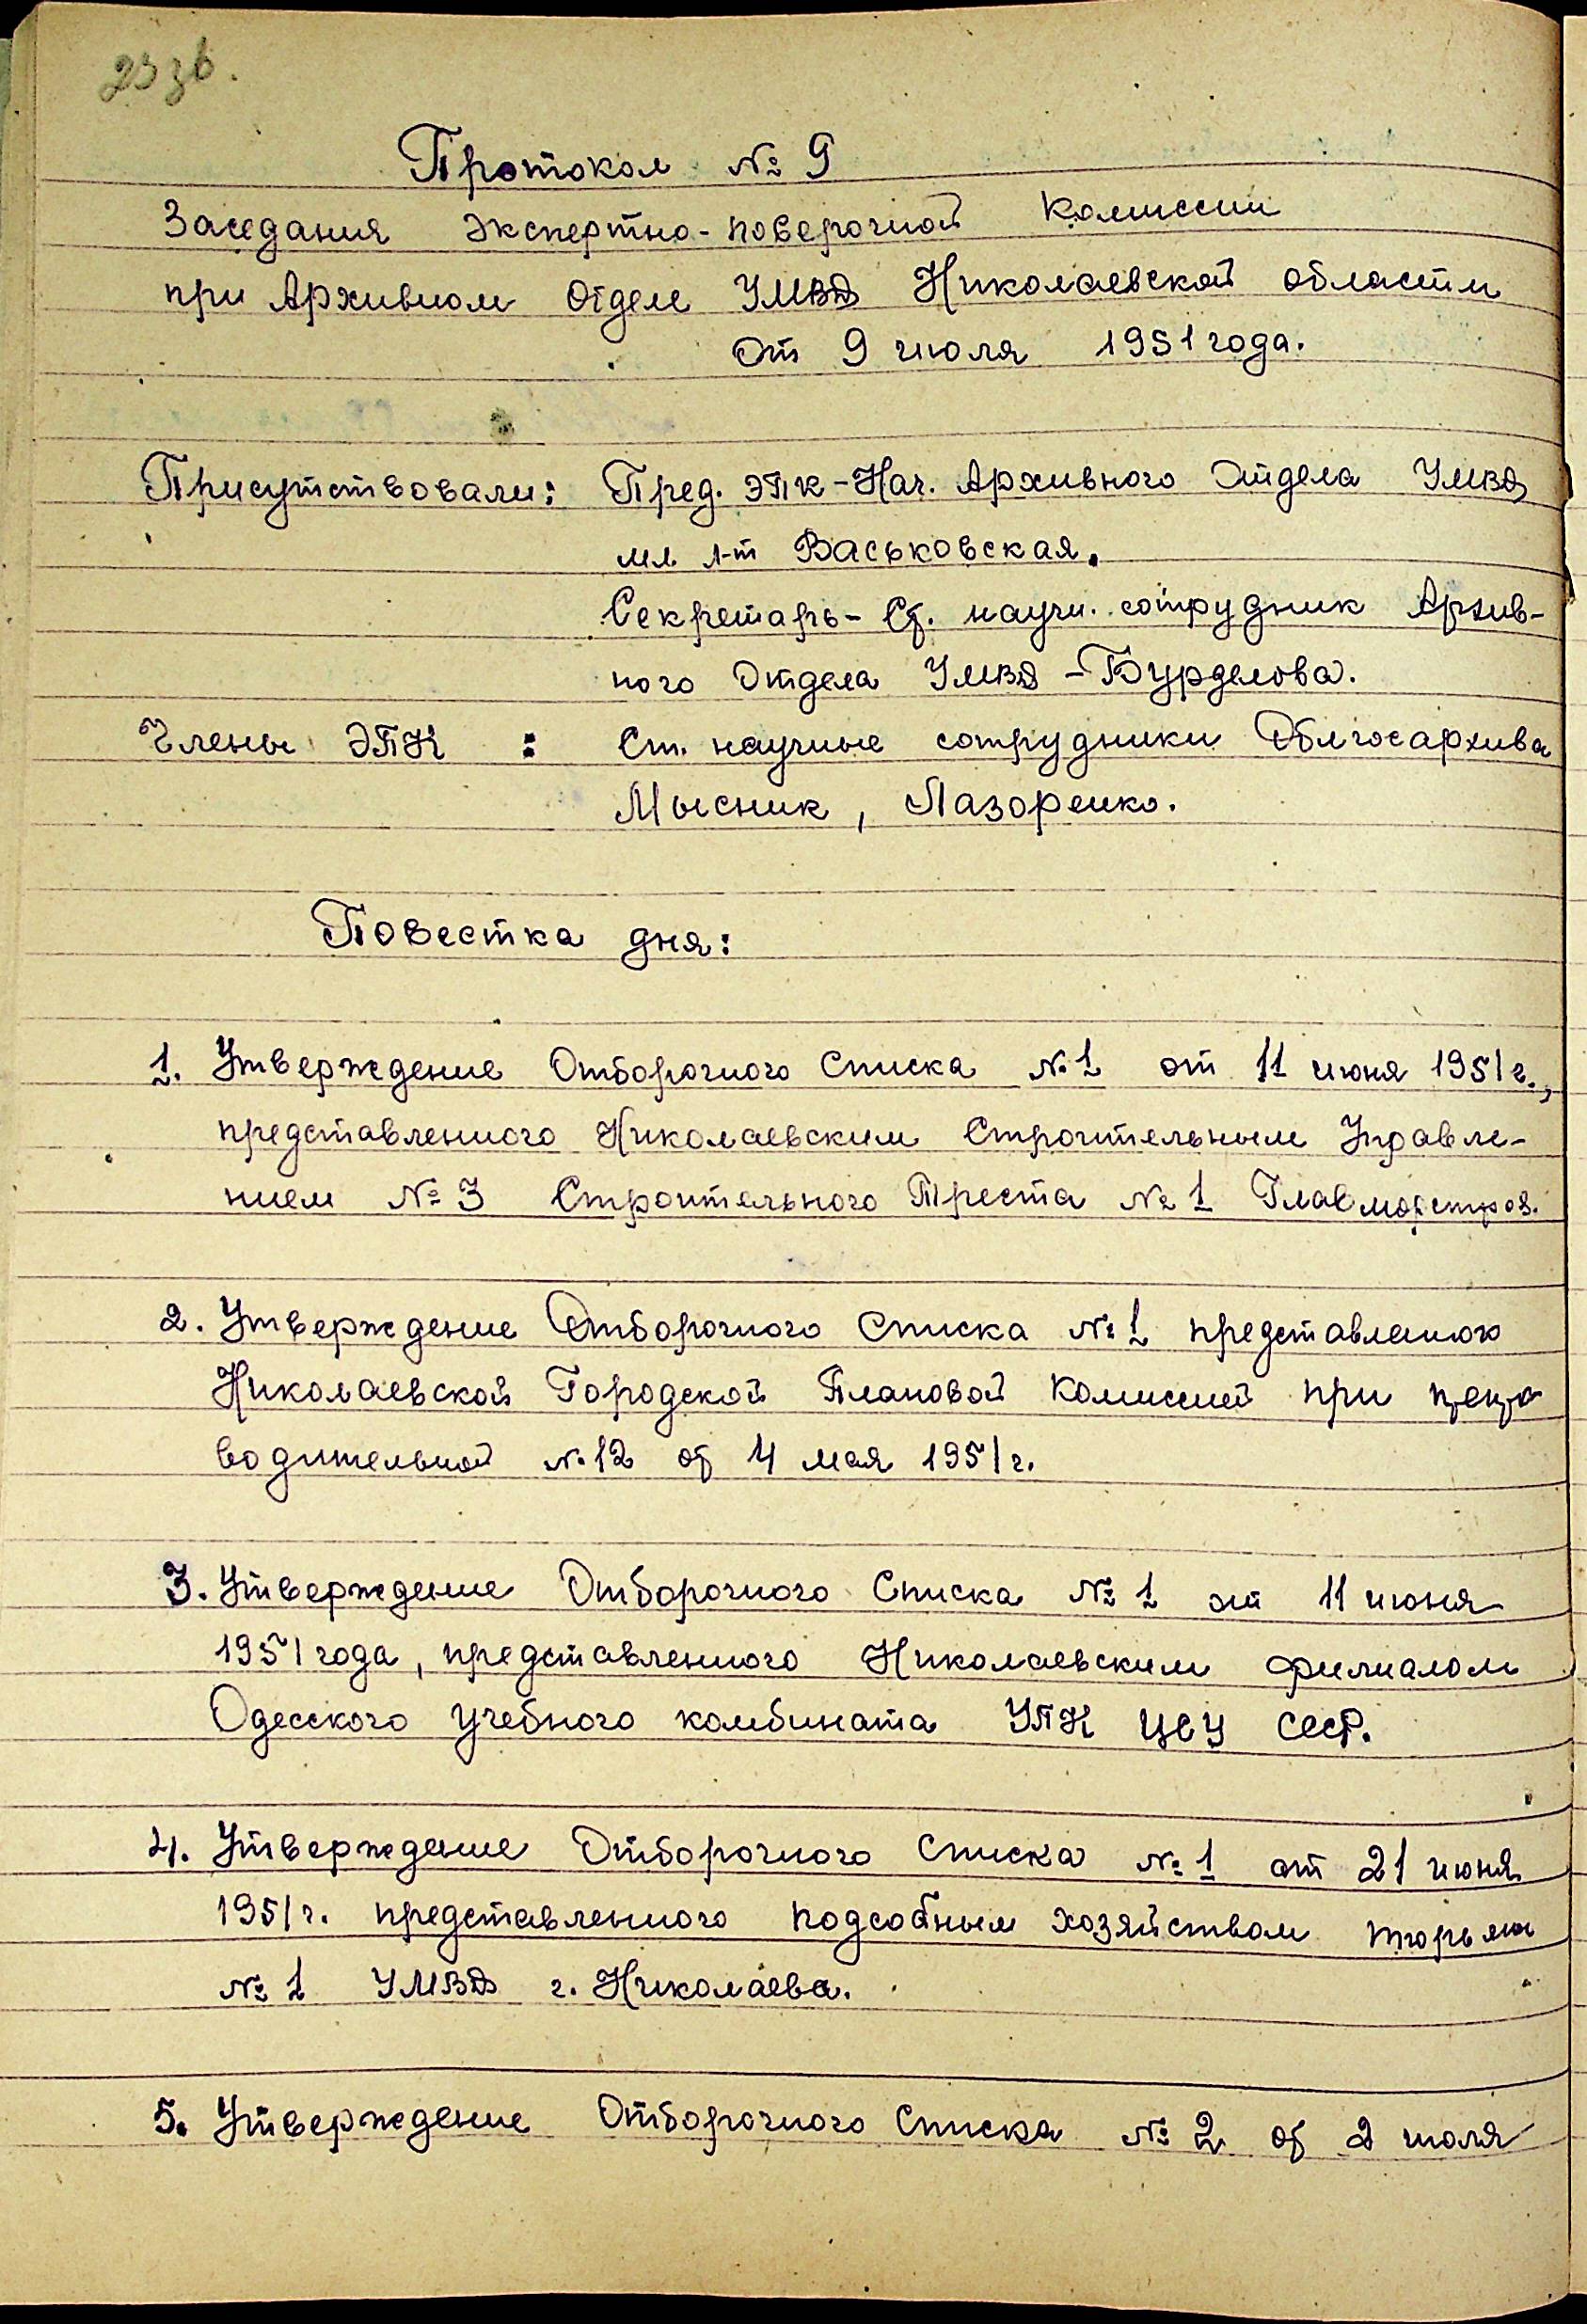 23 зв.
Протокол № 9
Заседания Экспертно-поверочной Комиссии
при Архивном Отделе УМВД Николаевской области
от 9 июля 1951 года.
Присутствовали: Пред. ЭПК - Нач. Архивного Отдела УМВД
мл л-т Васьковская.
Секретарь - Ст. научн. сотрудник Архив-
ного Отдела УМВД - Бурделова.
Члены ЭПК : Ст. научные сотрудники Облгосархива
Мысник, Лазоренко.
Повестка дня:
1. Утверждение Отборочного Списка № 1 от 11 июня 1951 г.,
представленного Николаевским Строительным Управле-
нием № 3 Строительного Треста № 1 Главморстроя.
2. Утверждение Отборочного Списка № 1 представленого
Николаевской Городской Плановой Комиссией при
водительной № 12 от 4 мая 1951 г.
3. Утверждение Отборочного Списка № 1 от 11 июня
1951 года, представленного Николаевским филиалом
Одесского Учебного комбината УПК ЦСУ СССР.
4. Утверждение Отборочного Списка № 1 от 21 июня
1951 г. представленного подсобным хозяйством тюрьмы
№ 1 УМВД г. Николаева.
5. Утверждение Отборочного Списка № 2 от 2 июля